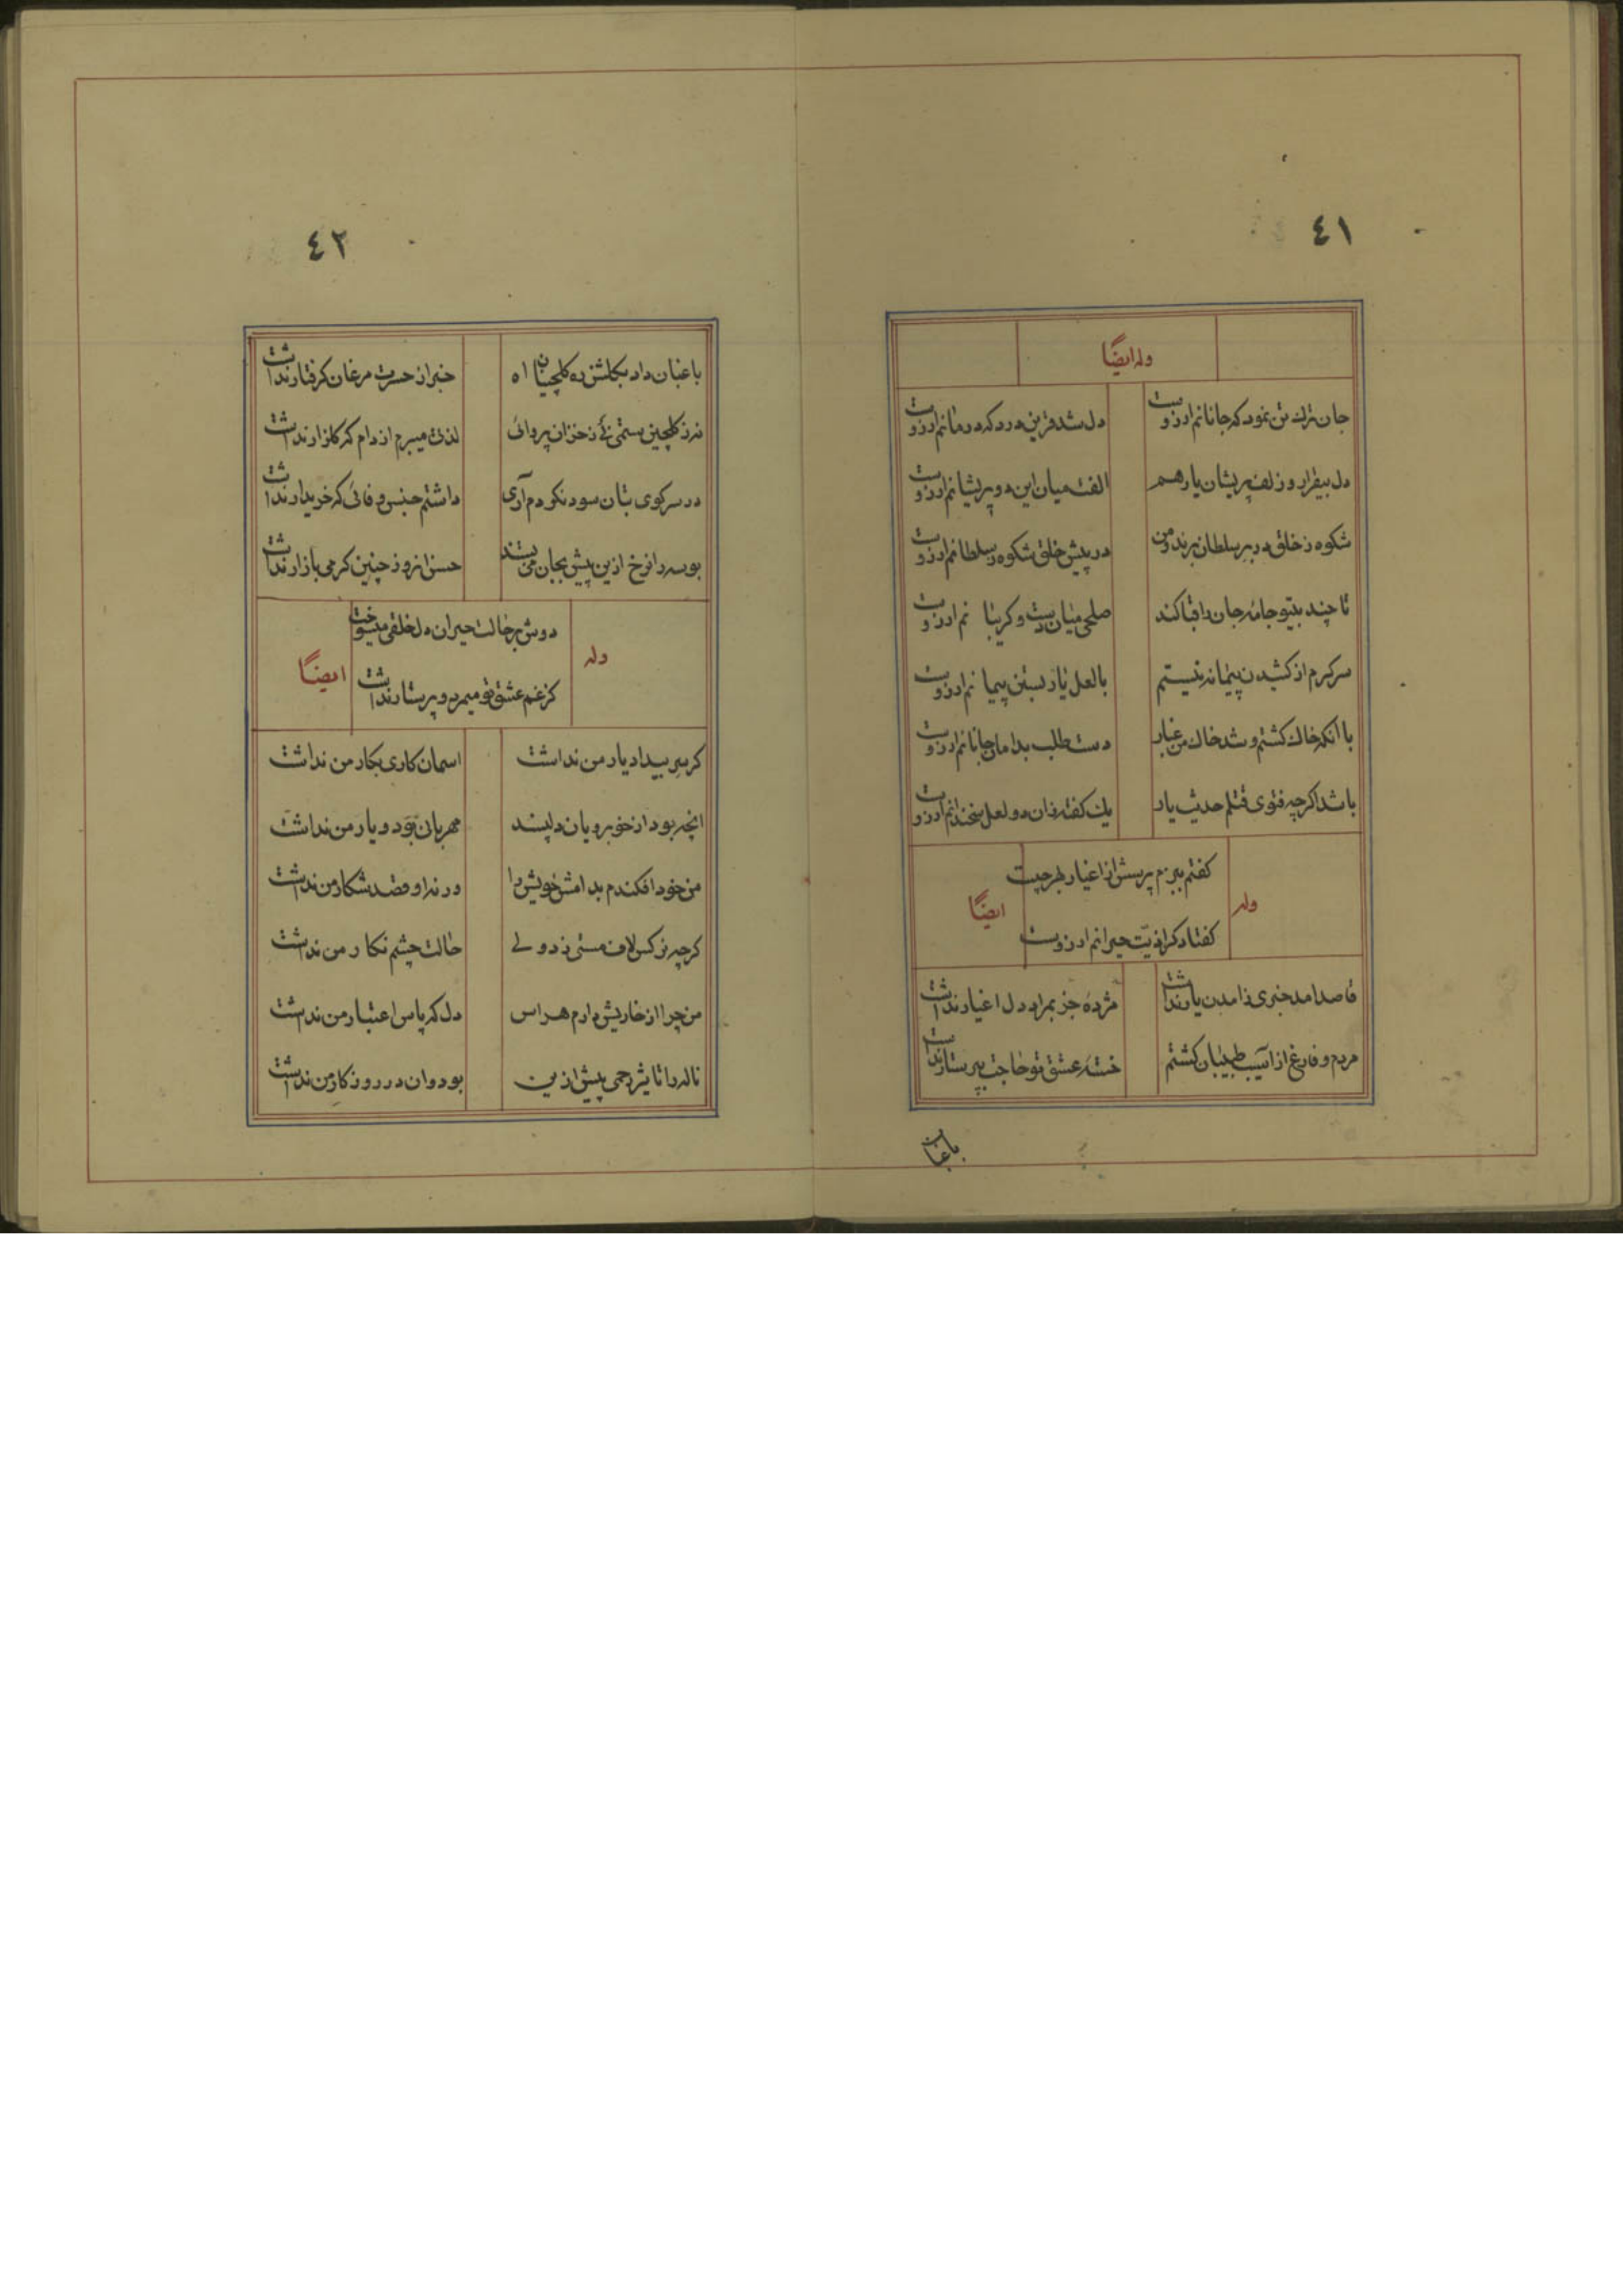 ٤١
وله ایضًا
جان ترك تن نمود که جانانم ارزوست
دل شد قرین درد که درمانم ارزوست
دل بیقرار و زلف پریشان یار هم
الفت میان این دو پریشانم ارزوست
شکوه ز خلق در بر سلطان برند و من
در پیش خلق شکوه ز سلطانم ارزوست
تا چند بیتو جامهٔ جان را قبا کند
صلحی میان دست و کریبانم ارزوست
سرکرم از کشیدن پیمانه نیستم
با لعل یار بستن پیمانم ارزوست
با آنکه خاك کشتم و شد خاك من غبار
دست طلب بدامان جانانم ارزوست
باشد اکرچه فتوی قتلم حدیث یار
یك کفته زان دو لعل سخندانم ارزوست
وله
کفتم ببزم پرسش از اغیار بهر چیست
کفتا دکر اذیّت حیرانم ارزوست
ایضًا
قاصد امد خبری ز امدن یار نداشت
مژدهٔ جز بمراد دل اغیار نداشت
مردم و فارغ از آسیب طبیبان کشتم
خستهٔ عشق تو حاجت بپرستار نداشت
باغبان
٤٢
باغبان داد بکلشن ره کلچینان اه
خبر از حسرت مرغان کرفتار نداشت
نه ز کلچین ستمی نی ز خزان پروائی
لذتی میبرم از دام که کلزار نداشت
در سر کوی بتان سود نکردم آری
داشتم جنس وفائی که خریدار نداشت
بوسه را نرخ ازین پیش بجان می‌بستند
حسن انروز چنین کرمی بازار نداشت
وله
دوش بر حالت حیران دل خلقی میسوخت
کز غم عشق تو میمرد و پرستار نداشت
ایضًا
کر سر بیداد یار من نداشت
اسمان کاری بکار من نداشت
انچه بود از خوبرویان دلپسند
مهربانی بود و یار من نداشت
من خود افکندم بدامش خویش را
ورنه او قصد شکار من نداشت
کرچه نرکس لاف مستی زد ولی
حالت چشم نکار من نداشت
من چرا از خاریش دارم هراس
دل که پاس اعتبار من نداشت
ناله را تاثیر رحمی پیش ازین
بود وان در روزکار من نداشت